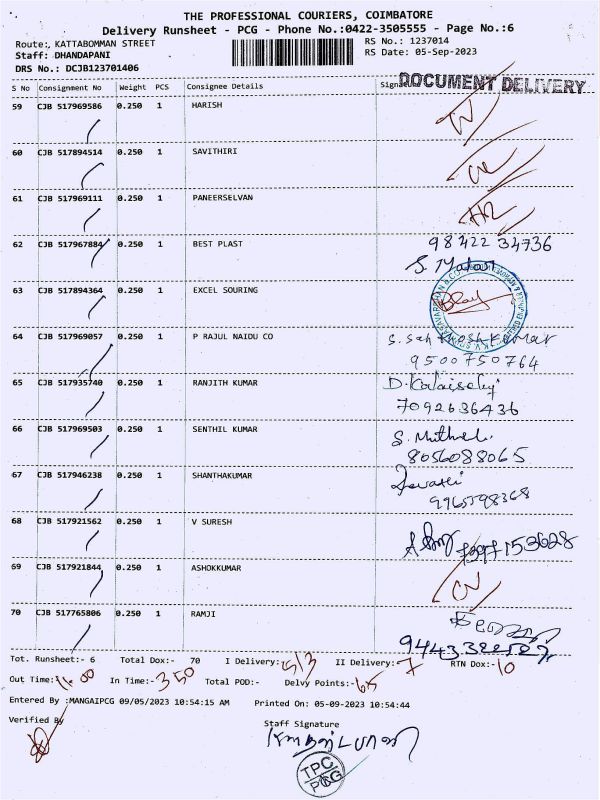 THE PROFESSIONAL COURIERS, COIMBATORE
Delivery Runsheet - PCG - Phone No.:0422-3505555 - Page No.:6
Route:, KATTABOMMAN STREET
RS No.: 1237014
Staff: DHANDAPANI
RS Date: 05-Sep-2023
DRS No.: DCJB123701406
DOCUMENT DELIVERY
S No Consignment No Weight PCS Consignee Details
59 CJB 517969586 0.250 1 HARISH
60 CJB 517894514 0.250 1 SAVITHIRI
61 CJB 517969111 0.250 1 PANEERSELVAN
62 CJB 517967884 0.250 1 BEST PLAST 98422 34736
63 CJB 517894364 0.250 1 EXCEL SOURING
64 CJB 517969057 0.250 1 P RAJUL NAIDU CO S. Santhosh Kumar
9500750764
65 CJB 517935740 0.250 1 RANJITH KUMAR D. Kalaiselvi
7092636436
66 CJB 517969503 0.250 1 SENTHIL KUMAR
8056088065
67 CJB 517946238 0.250 1 SHANTHAKUMAR
68 CJB 517921562 0.250 1 V SURESH
69 CJB 517921844 0.250 1 ASHOKKUMAR
70 CJB 517765806 0.250 1 RAMJI
Tot. Runsheet:- 6 Total Dox:- 70 I Delivery:- 53 II Delivery:- 7 RTN Dox:- 10
Out Time:- 11.00 In Time:- 3.50 Total POD:- Delvy Points:- 65
Entered By :MANGAIPCG 09/05/2023 10:54:15 AM Printed On: 05-09-2023 10:54:44
Verified By
Staff Signature
TPC
PCG